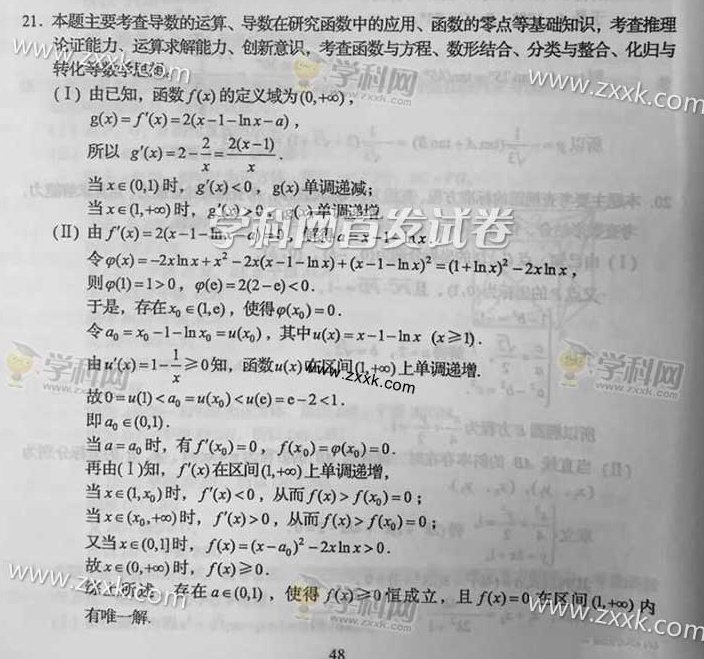 21. 本题主要考查导数的运算、导数在研究函数中的应用、函数的零点等基础知识，考查推理
论证能力、运算求解能力、创新意识，考查函数与方程、数形结合、分类与整合、化归与
转化等数学思想
学科网 www.zxxk.com
(Ⅰ) 由已知，函数 f(x) 的定义域为(0,+∞)，
g(x)=f′(x)=2(x−1−ln x−a)，
所以 g′(x)=2−2/x=2(x−1)/x.
当 x∈(0,1) 时，g′(x)<0，g(x) 单调递减；
当 x∈(1,+∞) 时，g′(x)>0，g(x) 单调递增.
学科网首发试卷
(Ⅱ) 由 f′(x)=2(x−1−ln x−a)=0，解得 a=x−1−ln x.
令φ(x)=−2x ln x+x²−2x(x−1−ln x)+(x−1−ln x)²=(1+ln x)²−2x ln x，
则φ(1)=1>0，φ(e)=2(2−e)<0.
于是，存在 x₀∈(1,e)，使得φ(x₀)=0.
令 a₀=x₀−1−ln x₀=u(x₀)，其中 u(x)=x−1−ln x (x≥1).
由 u′(x)=1−1/x≥0知，函数 u(x) 在区间(1,+∞) 上单调递增.
学科网
学科网
www.zxxk.com
故 0=u(1)<a₀=u(x₀)<u(e)=e−2<1.
即 a₀∈(0,1).
当 a=a₀ 时，有 f′(x₀)=0，f(x₀)=φ(x₀)=0.
再由(Ⅰ)知，f′(x) 在区间(1,+∞) 上单调递增，
当 x∈(1,x₀) 时，f′(x)<0，从而 f(x)>f(x₀)=0；
当 x∈(x₀,+∞) 时，f′(x)>0，从而 f(x)>f(x₀)=0；
又当 x∈(0,1] 时，f(x)=(x−a₀)²−2x ln x>0.
故 x∈(0,+∞) 时，f(x)≥0.
www.zxxk.com
学科网 www.zxxk.com
综上所述，存在 a∈(0,1)，使得 f(x)≥0 恒成立，且 f(x)=0 在区间 (1,+∞) 内
有唯一解.
48